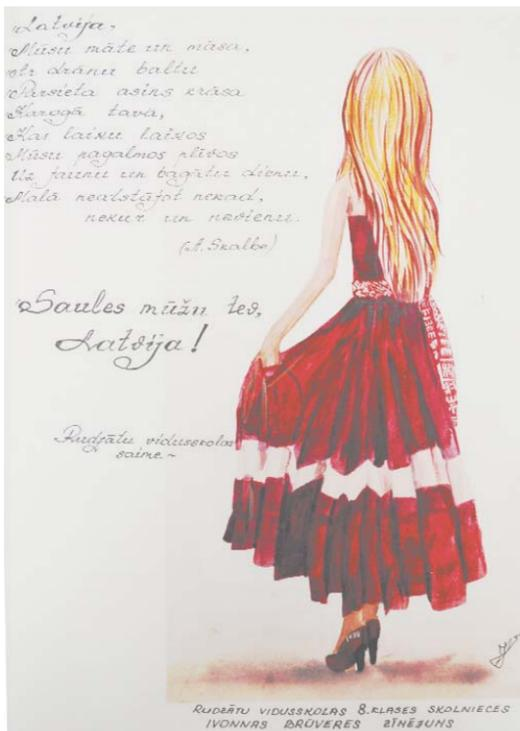 Latvija,
Mūsu māte un māsa,
Ar drānu baltu
Pārsieta asins krāsa
Karogā tavā,
Kas laiku laikos
Mūsu pagalmos plīvos
Uz jaunu un bagātu dienu,
Malā neatstājot nekad,
nekur un nevienu.
(A. Skalbe)
Saules mūžu tev,
Latvija!
Rudzātu vidusskolas
saime.~
RUDZĀTU VIDUSSKOLAS 8. KLASES SKOLNIECES
IVONNAS BRŪVERES ZĪMĒJUMS